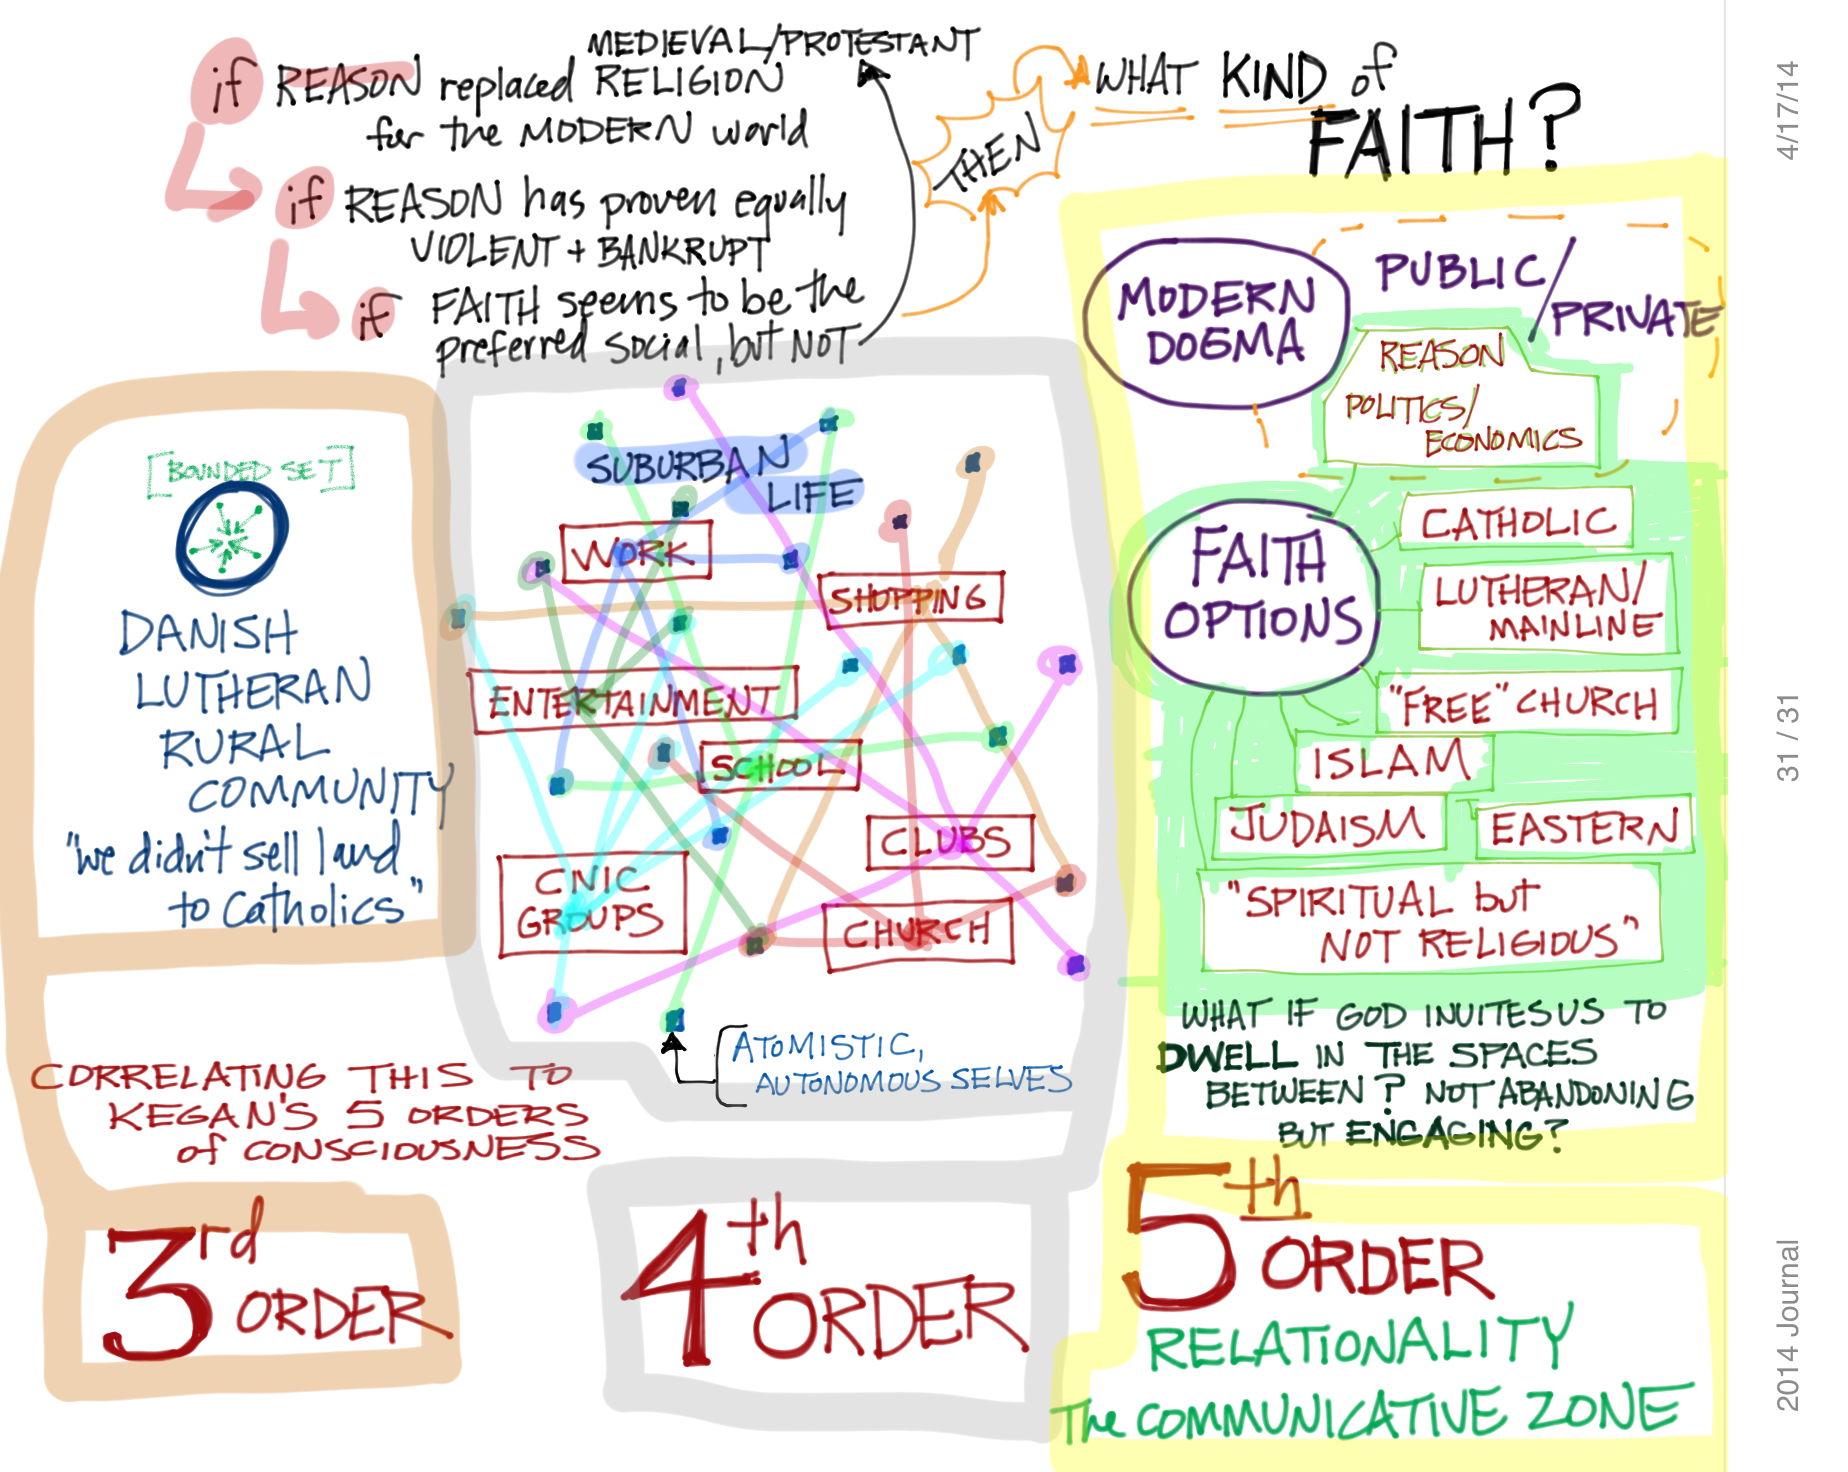 MEDIEVAL/PROTESTANT
if REASON replaced RELIGION
for the MODERN world
if REASON has proven equally
VIOLENT + BANKRUPT
if FAITH seems to be the
preferred social, but NOT
THEN
WHAT KIND of
FAITH?
[BOUNDED SET]
DANISH
LUTHERAN
RURAL
COMMUNITY
"we didn't sell land
to Catholics"
SUBURBAN
LIFE
WORK
SHOPPING
ENTERTAINMENT
SCHOOL
CLUBS
CIVIC
GROUPS
CHURCH
ATOMISTIC,
AUTONOMOUS SELVES
MODERN
DOGMA
PUBLIC/
PRIVATE
REASON
POLITICS/
ECONOMICS
FAITH
OPTIONS
CATHOLIC
LUTHERAN/
MAINLINE
"FREE" CHURCH
ISLAM
JUDAISM
EASTERN
"SPIRITUAL but
NOT RELIGIOUS"
WHAT IF GOD INVITES US TO
DWELL IN THE SPACES
BETWEEN? NOT ABANDONING
BUT ENGAGING?
CORRELATING THIS TO
KEGAN'S 5 ORDERS
of CONSCIOUSNESS
3rd ORDER
4th ORDER
5th ORDER
RELATIONALITY
The COMMUNICATIVE ZONE
4/17/14
31 / 31
2014 Journal